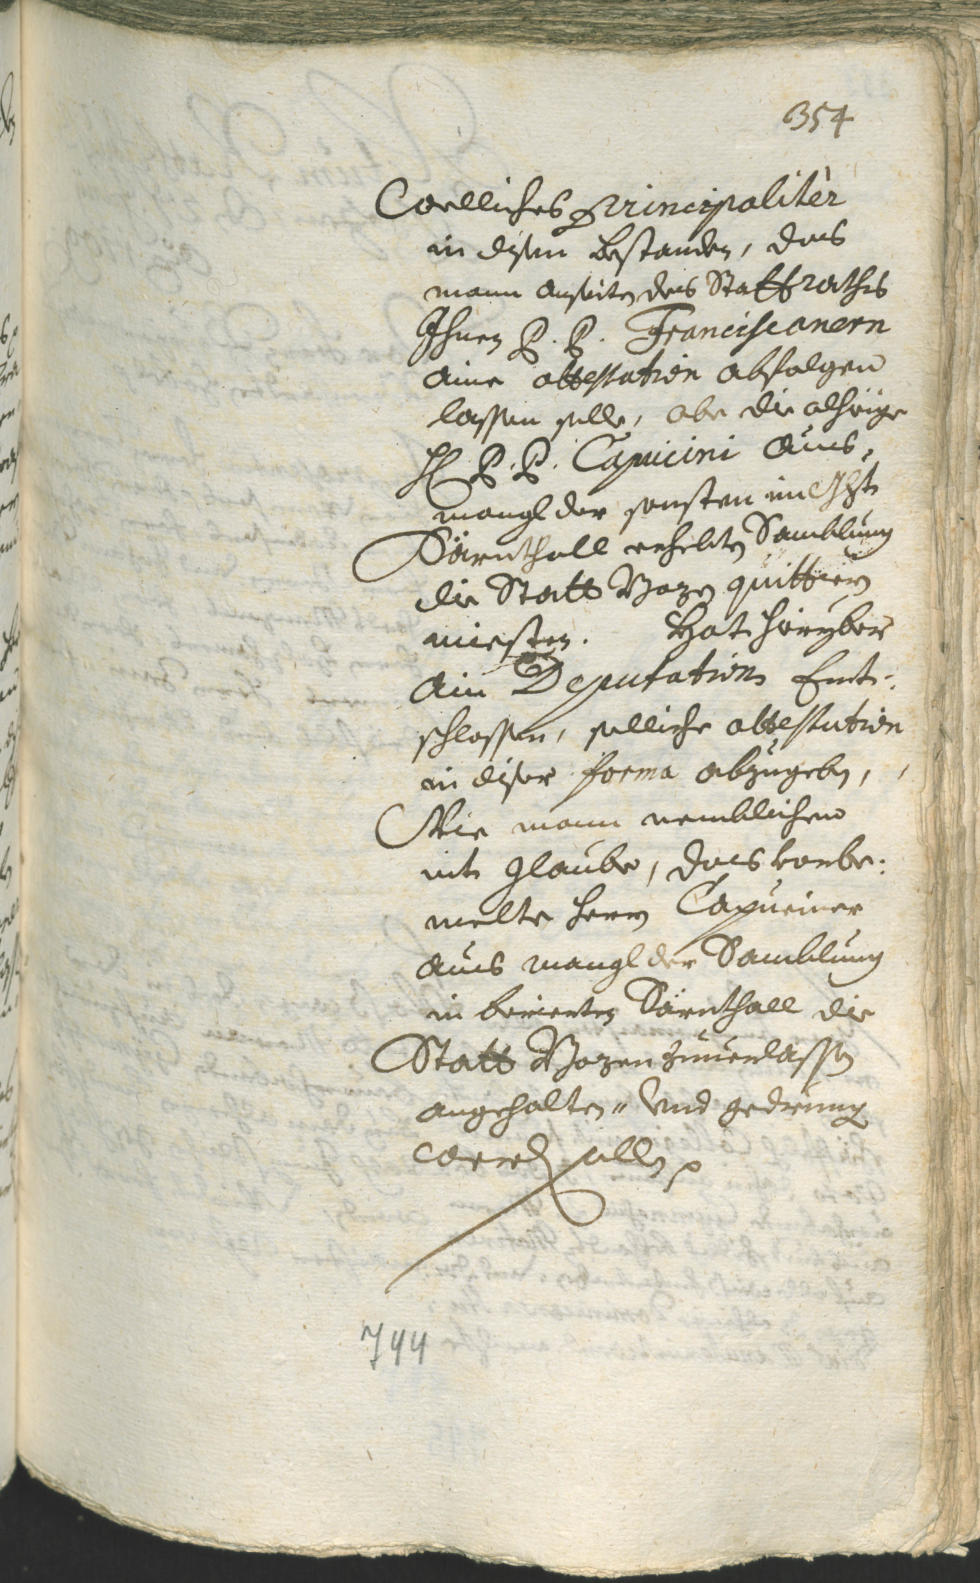 354
Welliches principaliter
in disem bestanden, das
mann anseiten des Stattraths
Ihnen P. P. Franciscanern
aine attestation abfolgen
lassen solle, ob die alhieige
H P. P. Capucini aus,
mangl der sonsten im Ght
Särnthall erhebten Samblung
die Statt Bozen quittiern
miesten. Hat hieryber
ain Deputation Ent-
schlossen, solliche attestation
in diser forma abzugeben,
Wie mann nemblichen
nit glaube, das vorbe:
melte herrn Capuciner
aus mangl der Samblung
in beriertn Särnthall die
Statt Bozen zuuerlassen
angehalten" Vnd gedrung
werden solln
744